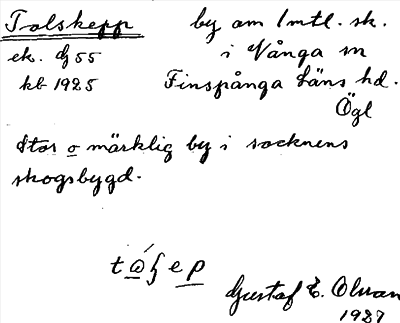 Tolskepp by om 1 mtl. sk.
ek. Dj 55 i Vånga sn
kb 1925 Finspånga Läns hd.
Ögl
Stor o märklig by i socknens
skogsbygd.
Gustaf E. Olsson
1927